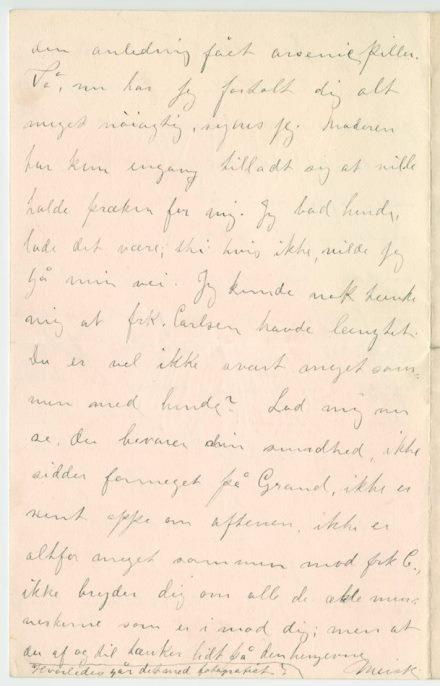 den anledning fået arsenicpiller.
Ja, nu har jeg fortalt dig alt
meget nøiagtig, synes jeg. Moderen
har kun engang tilladt sig at ville
holde præken for mig. Jeg bad hende,
lade det være; thi hvis ikke, vilde jeg
gå min vei. Jeg kunde nok tænke
mig at frk. Carlsen havde længtet.
Du er vel ikke svært meget sam-
men med hende? Lad mig nu
se, du bevarer din sundhed, ikke
sidder formeget på Grand, ikke er
sent oppe om aftenen, ikke er
altfor meget sammen med frk C.,
ikke bryder dig om alle de ækle men-
neskerne som er i mod dig; men at
du af og til tænker lidt på den hengivne
Hvorledes går det med fotografiet?